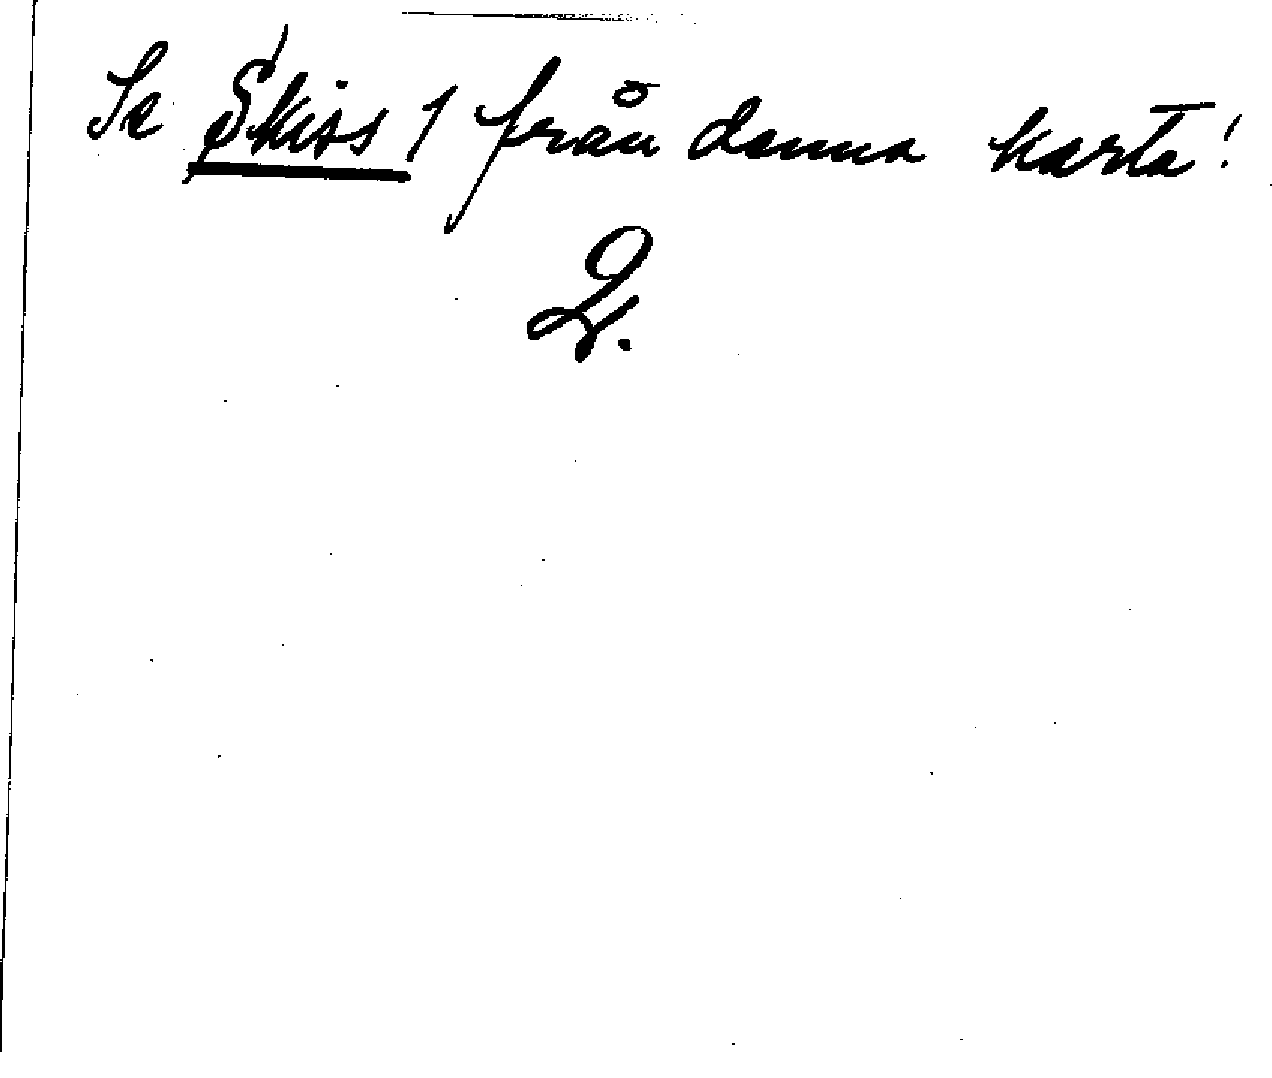 Se Skiss 1 från denna karta!